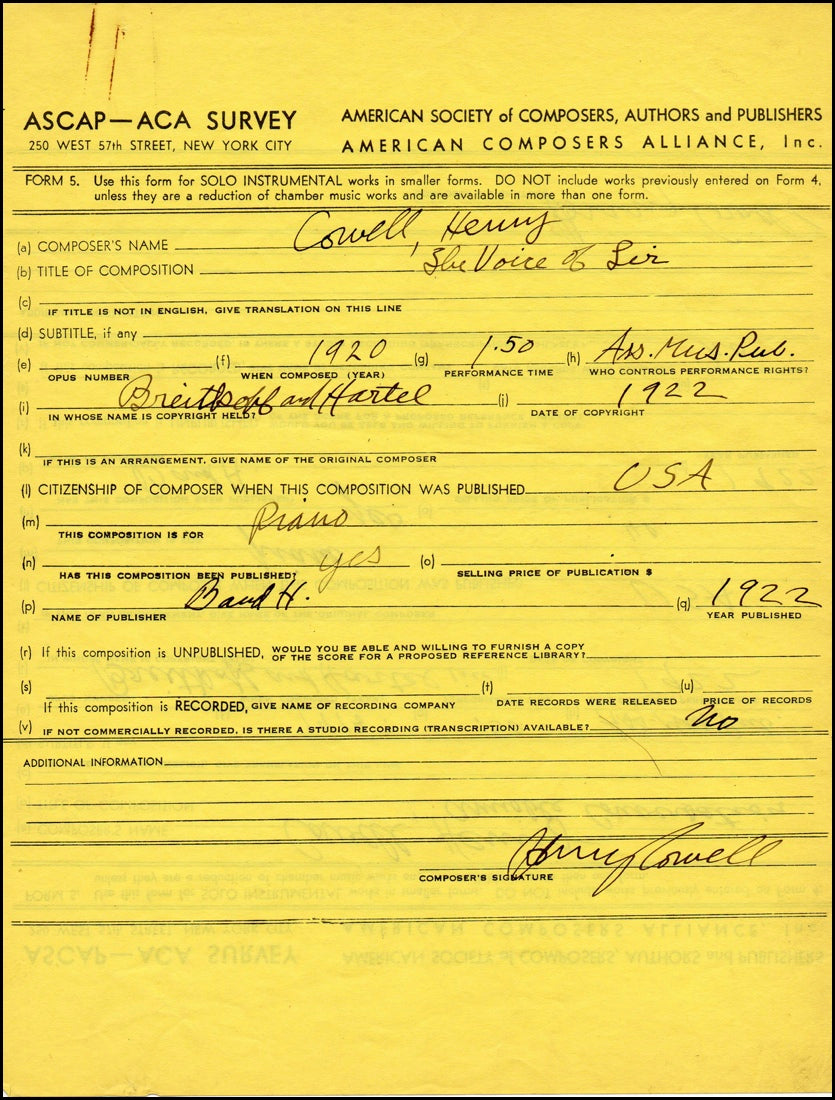 ASCAP—ACA SURVEY AMERICAN SOCIETY of COMPOSERS, AUTHORS and PUBLISHERS
250 WEST 57th STREET, NEW YORK CITY AMERICAN COMPOSERS ALLIANCE, Inc.
FORM 5. Use this form for SOLO INSTRUMENTAL works in smaller forms. DO NOT include works previously entered on Form 4,
unless they are a reduction of chamber music works and are available in more than one form.
(a) COMPOSER'S NAME Cowell, Henry
(b) TITLE OF COMPOSITION The Voice of Lir
(c)
IF TITLE IS NOT IN ENGLISH, GIVE TRANSLATION ON THIS LINE
(d) SUBTITLE, if any
(e) (f) 1920 (g) 1.50 (h) Ass. Mus. Pub.
OPUS NUMBER WHEN COMPOSED (YEAR) PERFORMANCE TIME WHO CONTROLS PERFORMANCE RIGHTS?
(i) Breitkopf and Hartel (j) 1922
IN WHOSE NAME IS COPYRIGHT HELD? DATE OF COPYRIGHT
(k)
IF THIS IS AN ARRANGEMENT, GIVE NAME OF THE ORIGINAL COMPOSER
(l) CITIZENSHIP OF COMPOSER WHEN THIS COMPOSITION WAS PUBLISHED USA
(m) Piano
THIS COMPOSITION IS FOR
(n) yes (o)
HAS THIS COMPOSITION BEEN PUBLISHED? SELLING PRICE OF PUBLICATION $
(p) B and H. (q) 1922
NAME OF PUBLISHER YEAR PUBLISHED
(r) If this composition is UNPUBLISHED, WOULD YOU BE ABLE AND WILLING TO FURNISH A COPY
OF THE SCORE FOR A PROPOSED REFERENCE LIBRARY?
(s) (t) (u)
If this composition is RECORDED, GIVE NAME OF RECORDING COMPANY DATE RECORDS WERE RELEASED PRICE OF RECORDS
(v) IF NOT COMMERCIALLY RECORDED, IS THERE A STUDIO RECORDING (TRANSCRIPTION) AVAILABLE? No
ADDITIONAL INFORMATION
Henry Cowell
COMPOSER'S SIGNATURE